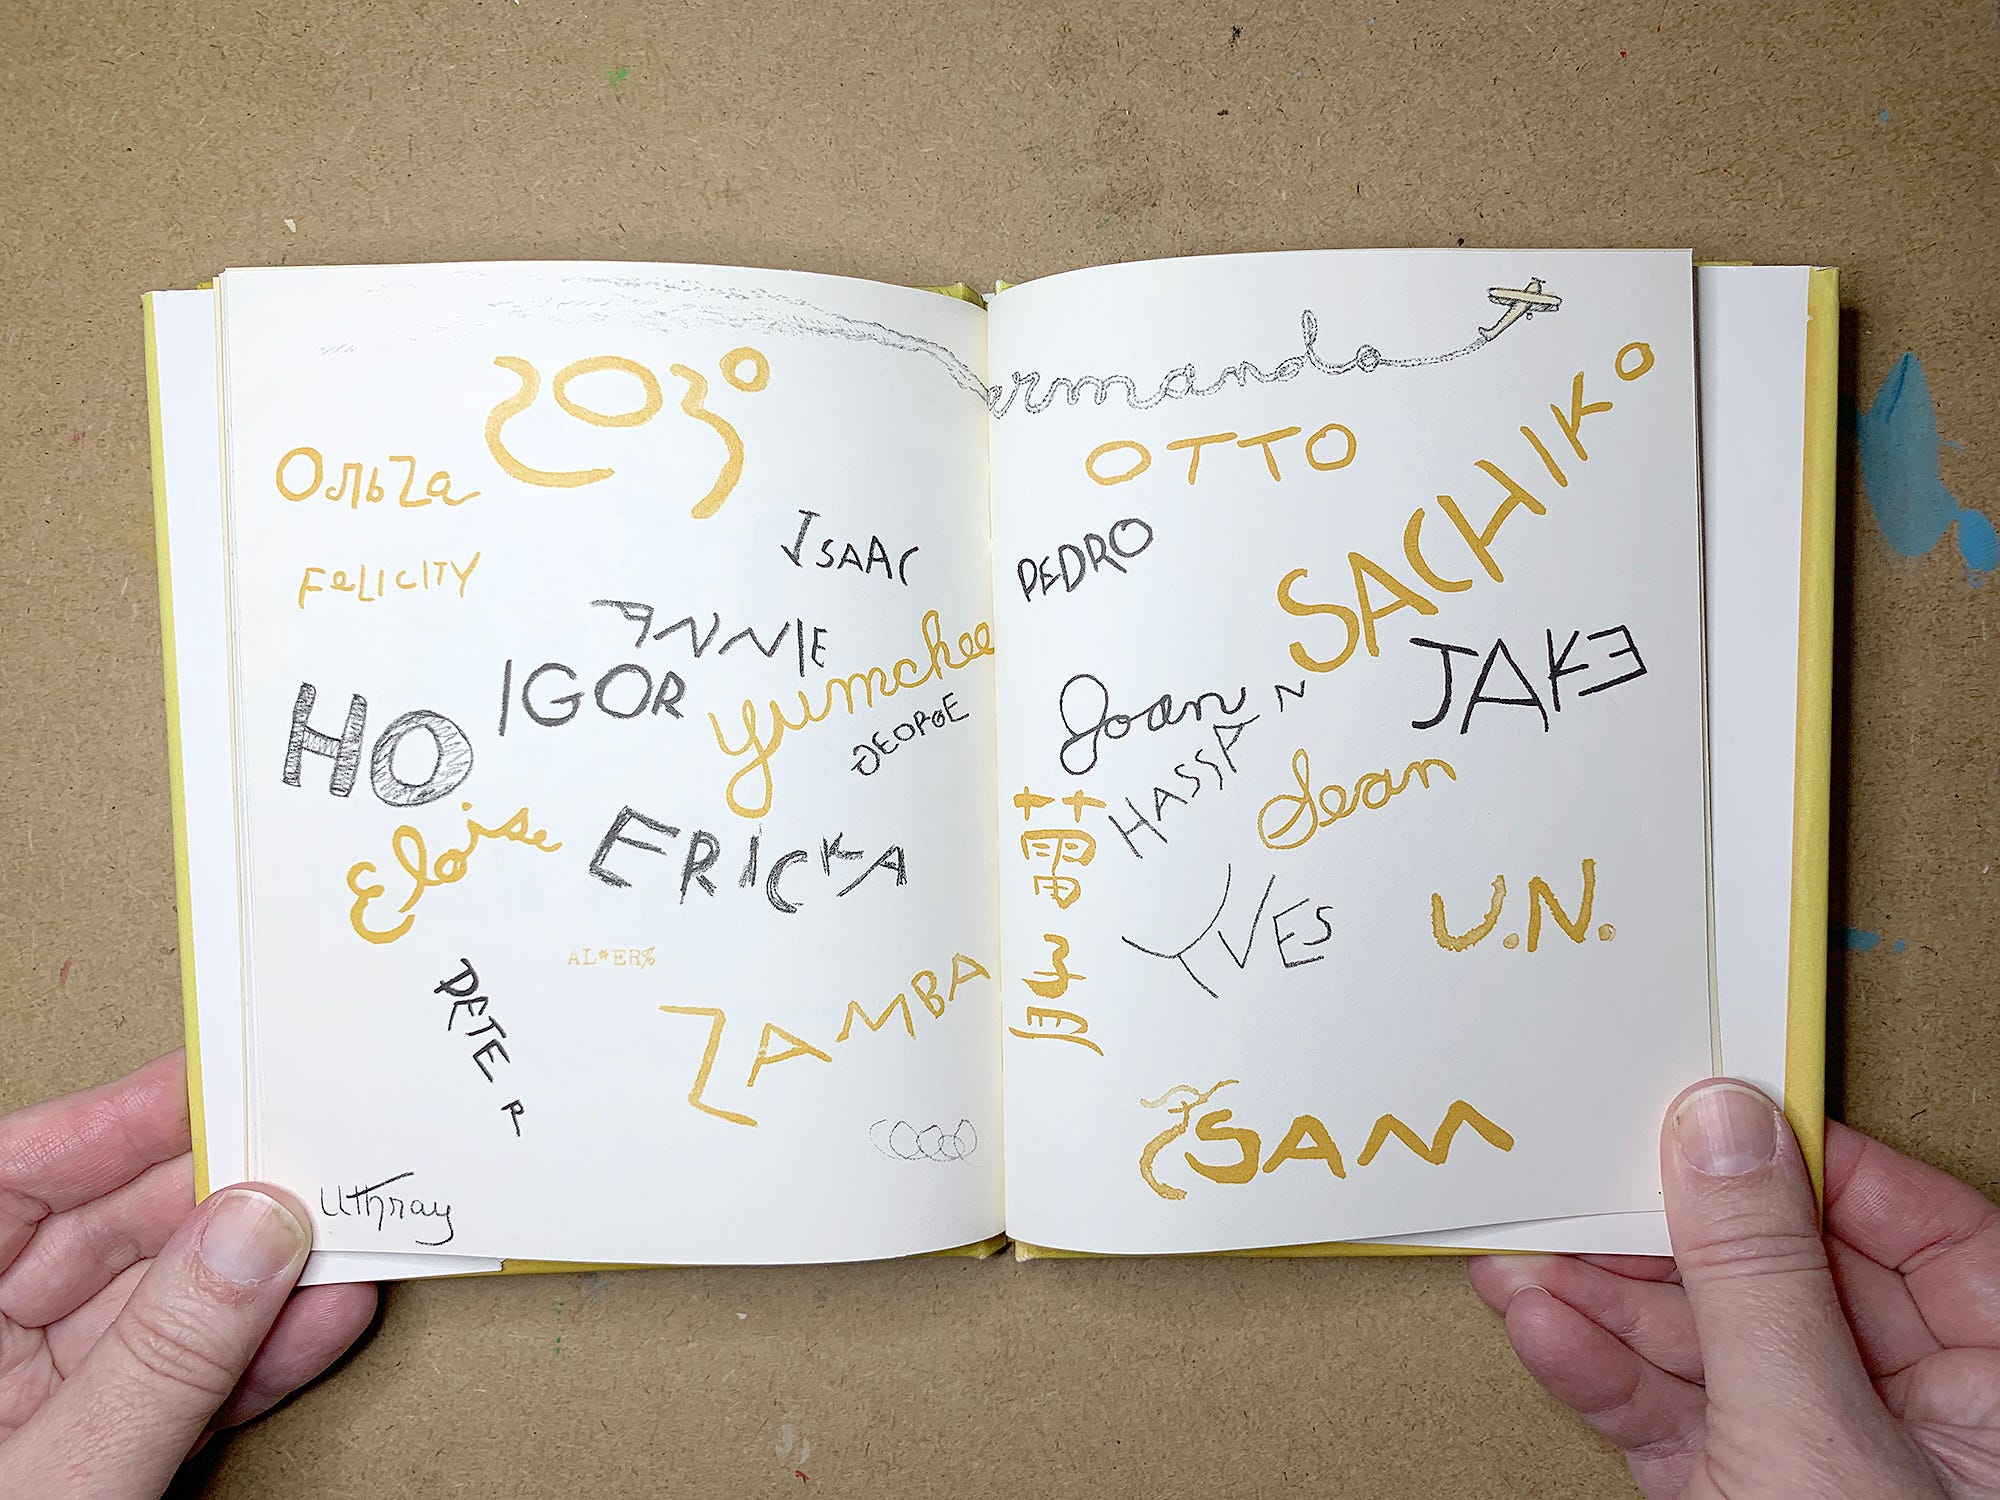 Ользa
FELICITY
ISAAC
ANNIE
IGOR
yumchee
GEORGE
HO
Eloise
ERICKA
AL*ER%
PETER
ZAMBA
Uthray
armando
OTTO
SACHIKO
PEDRO
JAKE
Joan
HASSAN
Sean
YVES
U.N.
SAM